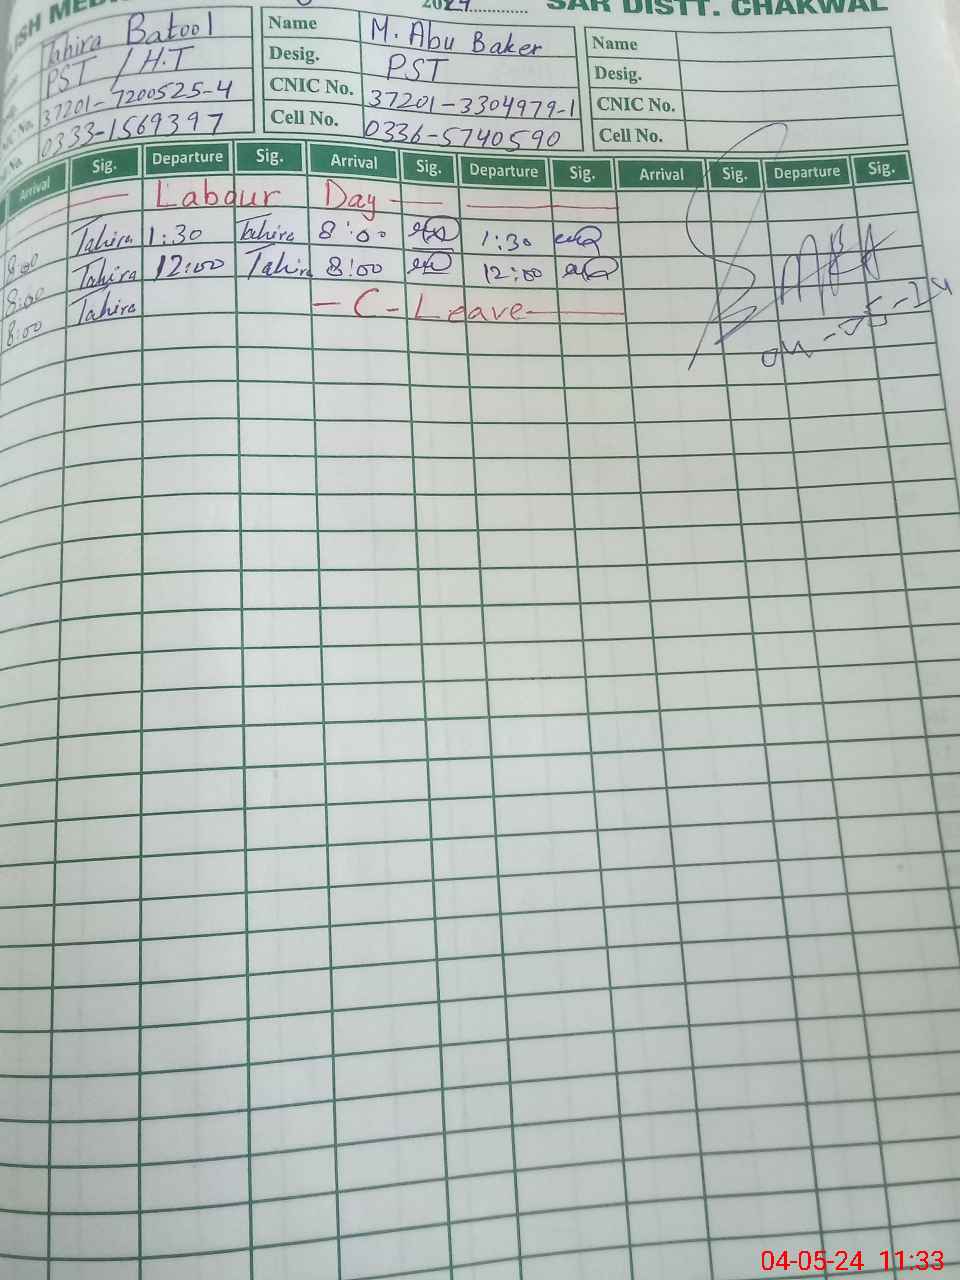 2024 SAR DISTT. CHAKWAL
Tahira Batool
PST / H.T
37201-7200525-4
0333-1569397
Name M. Abu Baker
Desig. PST
CNIC No. 37201-3304979-1
Cell No. 0336-5740590
Name
Desig.
CNIC No.
Cell No.
Arrival Sig. Departure Sig. Arrival Sig. Departure Sig. Arrival Sig. Departure Sig.
Labour Day
8:00 Tahira 1:30 Tahira 8:00 1:30
8:00 Tahira 12:00 Tahira 8:00 12:00
8:00 Tahira C-Leave
04-05-24 11:33